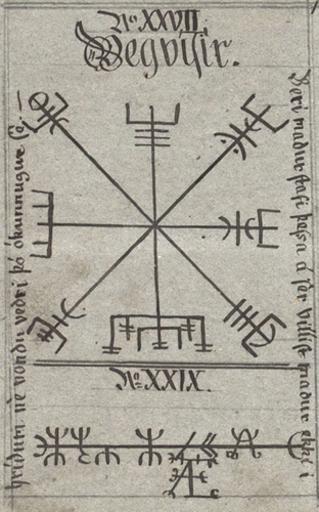 No XXVII.
Vegvísir.
Beri maður stafi þessa á sèr villist maður ekki í
hríðum nè vondu veðri þó ókunnugur sè.
No XXIX.